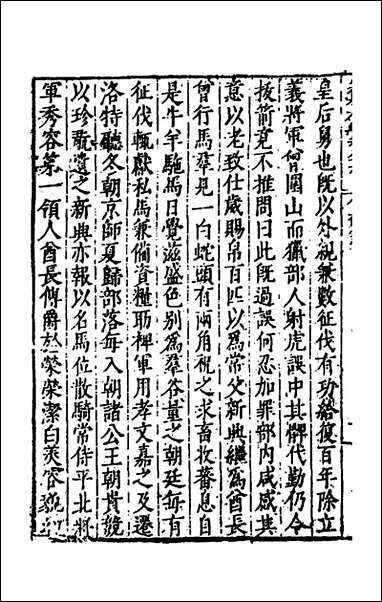 皇后舅也既以外親兼數征伐有功給復百年除立
義將軍曾圍山而獵部人射虎誤中其髀代勤仍令
拔箭竟不推問曰此既過誤何忍加罪部內咸感其
意以老致仕歲賜帛百匹以爲常父新典繼爲酋長
曾行馬羣見一白蛇頭有兩角祝之求畜牧蕃息自
是牛羊駞馬日覺滋盛色別爲羣谷量之朝廷每有
征伐輒獻私馬兼備資糧助裨軍用孝文嘉之及遷
洛特聽冬朝京師夏歸部落每入朝諸公王朝貴競
以珍翫遺之新典亦報以名馬位散騎常侍平北將
軍秀容第一領人酋長傳爵於榮榮潔白美容